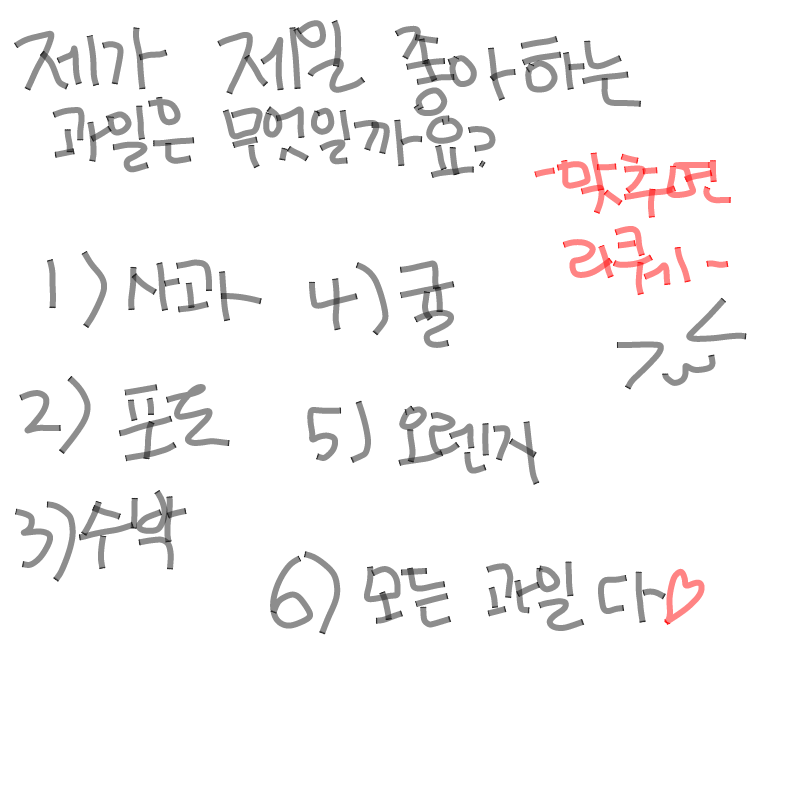 제가 제일 좋아하는
과일은 무엇일까요?
-맞추면
라쿠키-
1) 사과
2) 포도
3) 수박
4) 귤
5) 오렌지
6) 모든 과일 다♡